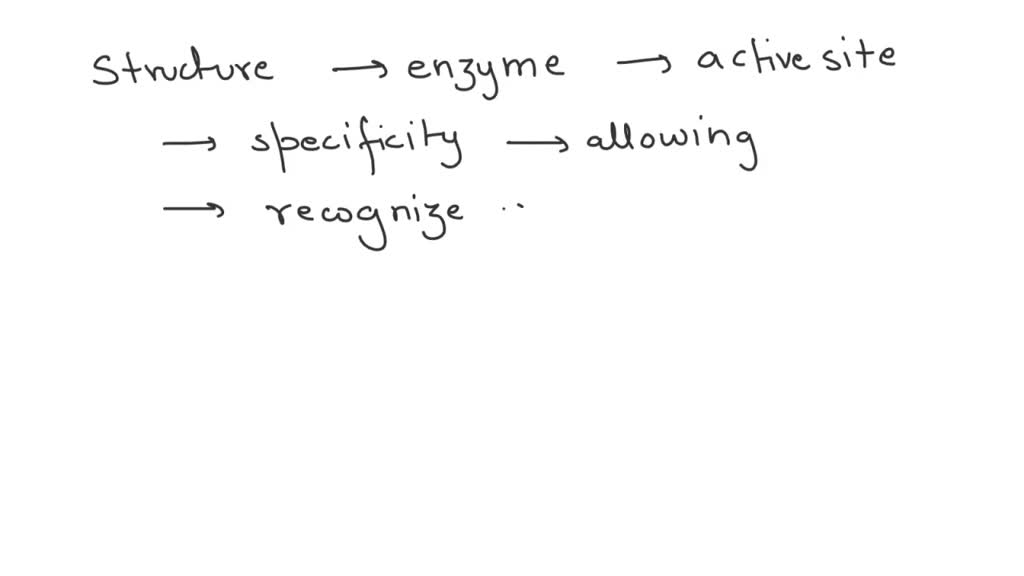 Structure → enzyme → active site
→ specificity → allowing
→ recognize ..